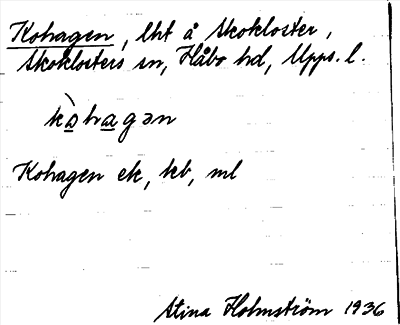 Kohagen, lht å Skokloster,
Skoklosters sn, Håbo hd, Upps. l.
kò̱ha̱gən
Kohagen ek, kb, ml
Stina Holmström 1936